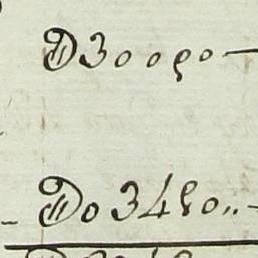 D30090—
Do 3480..-